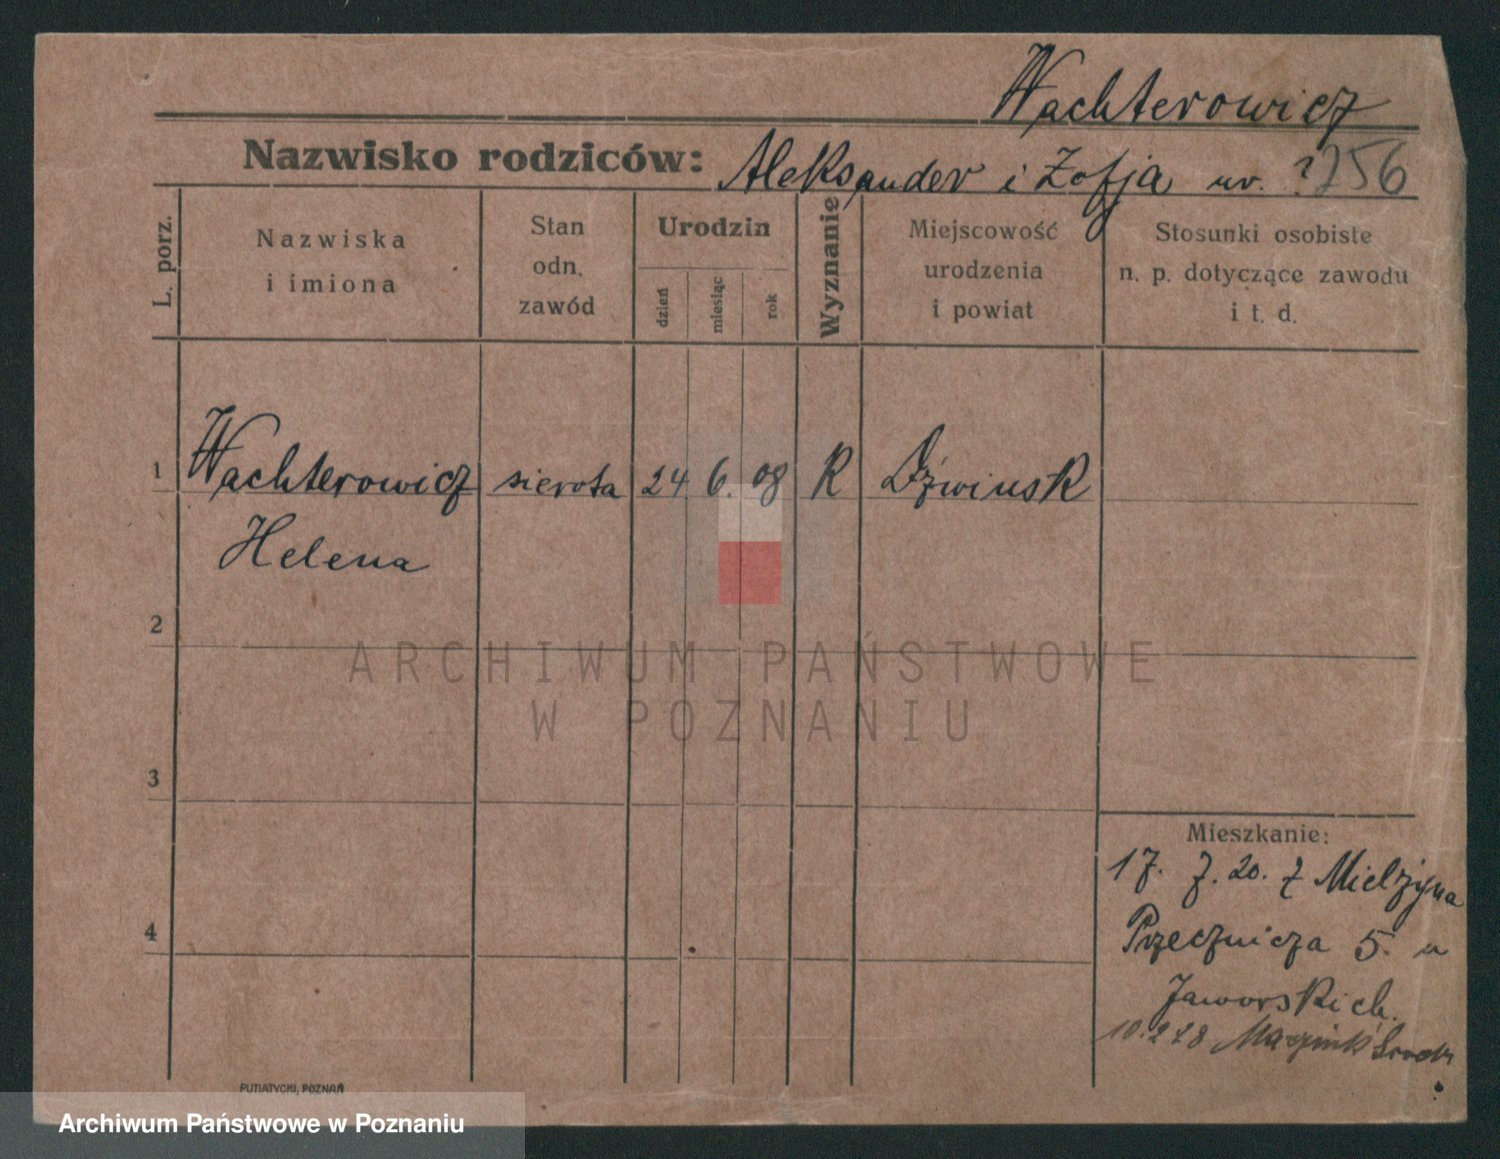 Wachterowicz
Nazwisko rodziców: Aleksander i Zofja ur. ? 756
L. porz.
Nazwiska
i imiona
Stan
odn.
zawód
Urodzin
dzień
miesiąc
rok
Wyznanie
Miejscowość
urodzenia
i powiat
Stosunki osobiste
n. p. dotyczące zawodu
i t. d.
1 Wachterowicz sierota 24 6. 08 R Dźwinsk
Helena
2
ARCHIWUM PAŃSTWOWE
W POZNANIU
3
Mieszkanie:
17. 7. 20. z Mielżyna
4
Przecznicza 5. u
Jaworskich.
10.2 28
PUTIATYCKI, POZNAŃ
Archiwum Państwowe w Poznaniu